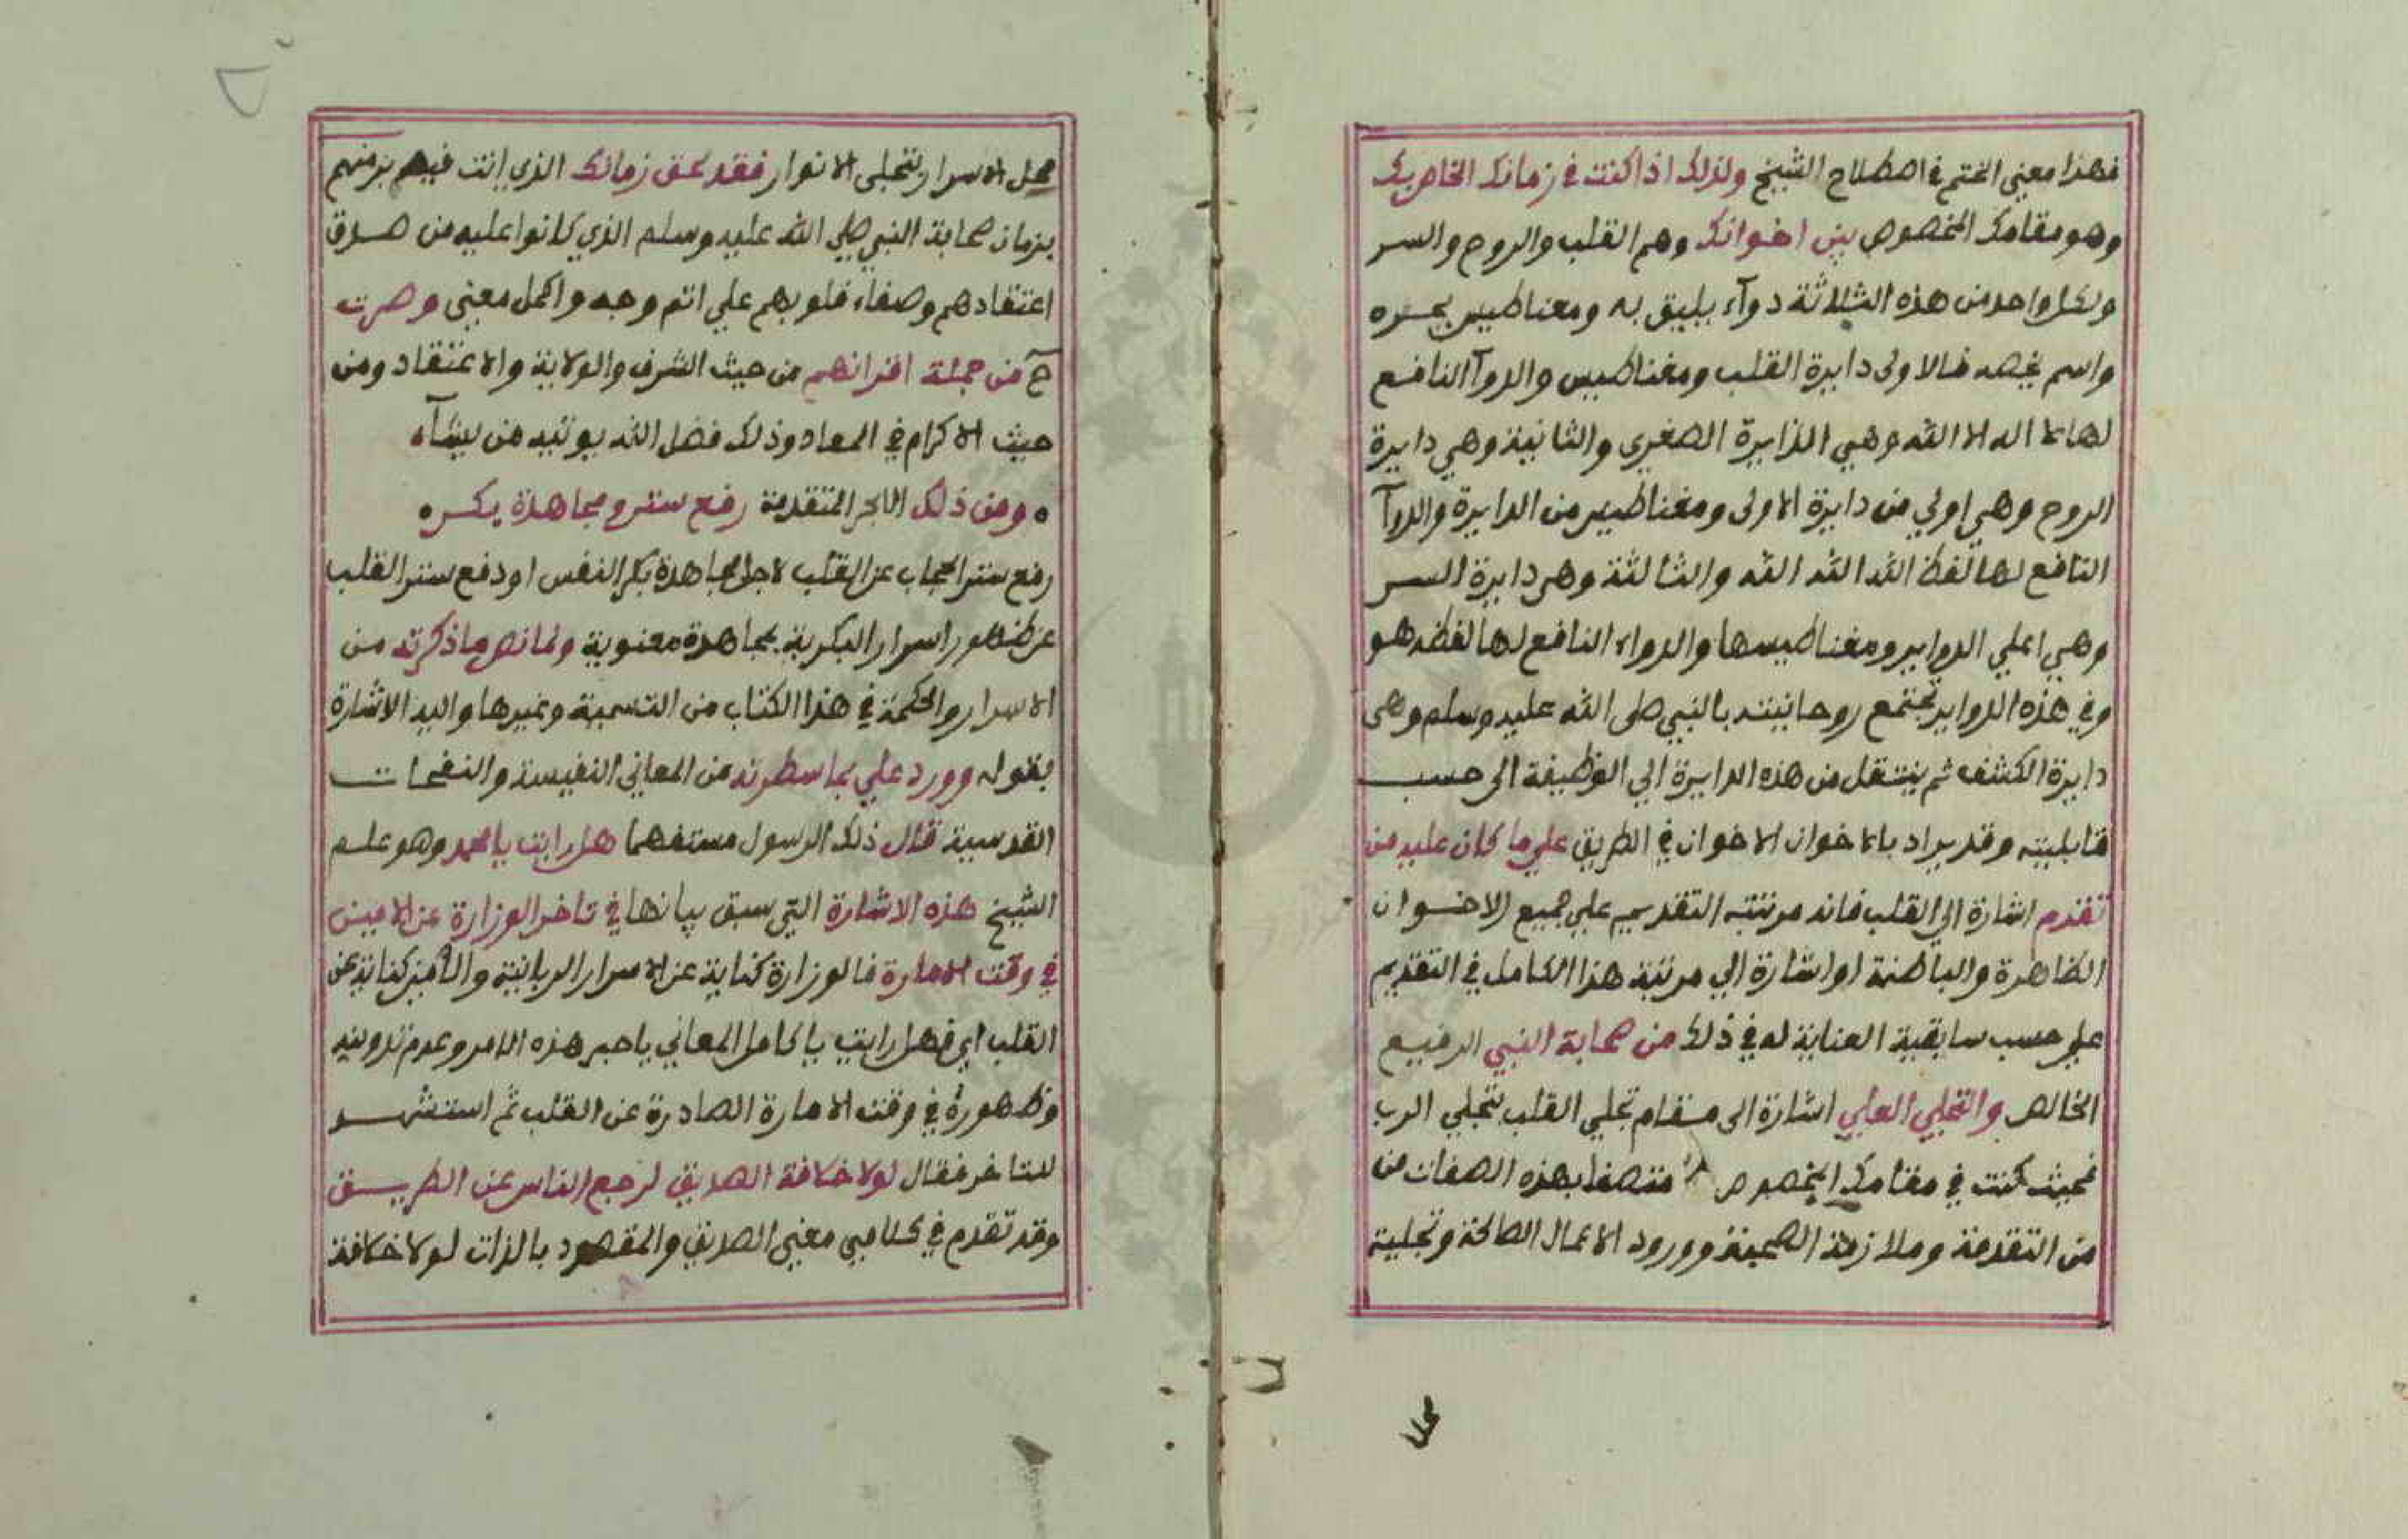 فهذا معني الختم في اصطلاح الشيخ ولذلك اذا كنت في زمانك الخاص بك
وهو مقامك المخصوص بين اخوانك وهم القلب والروح والسر
ولكل واحد من هذه الثلاثة دوآء يليق به ومغناطيس يجره
واسم يخصه فالاولى دايرة القلب ومغناطيس والدوآ النافع
لها لا اله الا الله وهي الدايرة الصغري والثانية وهي دايرة
الروح وهي اولي من دايرة الاولى ومغناطيس من الدايرة والدوآ
النافع لها لفظ الله الله الله والثالثة وهي دايرة السر
وهي اعلي الدواير ومغناطيسها والدواء النافع لها لفظه هو
وفي هذه الدواير تجتمع روحانيته بالنبي صلى الله عليه وسلم وهي
دايرة الكشف ثم ينتقل من هذه الدايرة الي الوظيفة الى حسب
قابليته وقد يراد بالاخوان الاخوان في الطريق علي ما كان عليه من
تقدم اشارة الي القلب فانه مرتبته التقديم علي جميع الاخوان
الظاهرة والباطنة او اشارة الي مرتبة هذا الكامل في التقديم
علي حسب سابقية العناية له في ذلك من صحابة النبي الرفيع
الخالص والتجلي العلي اشارة الى مقام تجلي القلب بتجلي الرب
فحيث كنت في مقامك المخصوص متصفا بهذه الصفات من
من التقدمة وملازمة الصحبة وورود الاعمال الصالحة وتجلية
محل
محل الاسرار بتجلى الانوار فقد لحق زمانك الذي انت فيهم بزمنهم
بزمان صحابة النبي صلي الله عليه وسلم الذي كانوا عليه من صدق
اعتقادهم وصفاء قلوبهم علي اتم وجه واكمل معني وصرت
ح من جملة اقرانهم من حيث الشرف والولاية والاعتقاد ومن
حيث الاكرام في المعاد وذلك فضل الله يوتيه من يشآء
ومن ذلك الابحر المتقدمة رفع ستر ومجاهدة بكر
رفع ستر الحجاب عن القلب لاجل مجاهدة بكر النفس او دفع ستر القلب
عن ظهور اسرار البكرية بمجاهدة معنوية ولما نص ما ذكرته من
الاسرار والحكمة في هذا الكتاب من التسمية وغيرها واليه الاشارة
بقوله وورد علي بما سطرته من المعاني النفيسة والنفحات
القدسية قال ذلك الرسول مستفهما هل رايت يا محمد وهو علم
الشيخ هذه الاشارة التي سبق بيانها في تاخر الوزارة عن الامين
في وقت الامارة فالوزارة كناية عن الاسرار الربانية والامين كناية عن
القلب اي فهل رايت يا كامل المعاني ياحبر هذه الامر وعدم تدوينه
وظهوره في وقت الامارة الصادرة عن القلب ثم استشهد
للتاخر فقال لولا خلافة الصديق لرجع الناس عن الطريق
وقد تقدم في كلامي معني الصديق والمقصود بالذات لولا خلافة